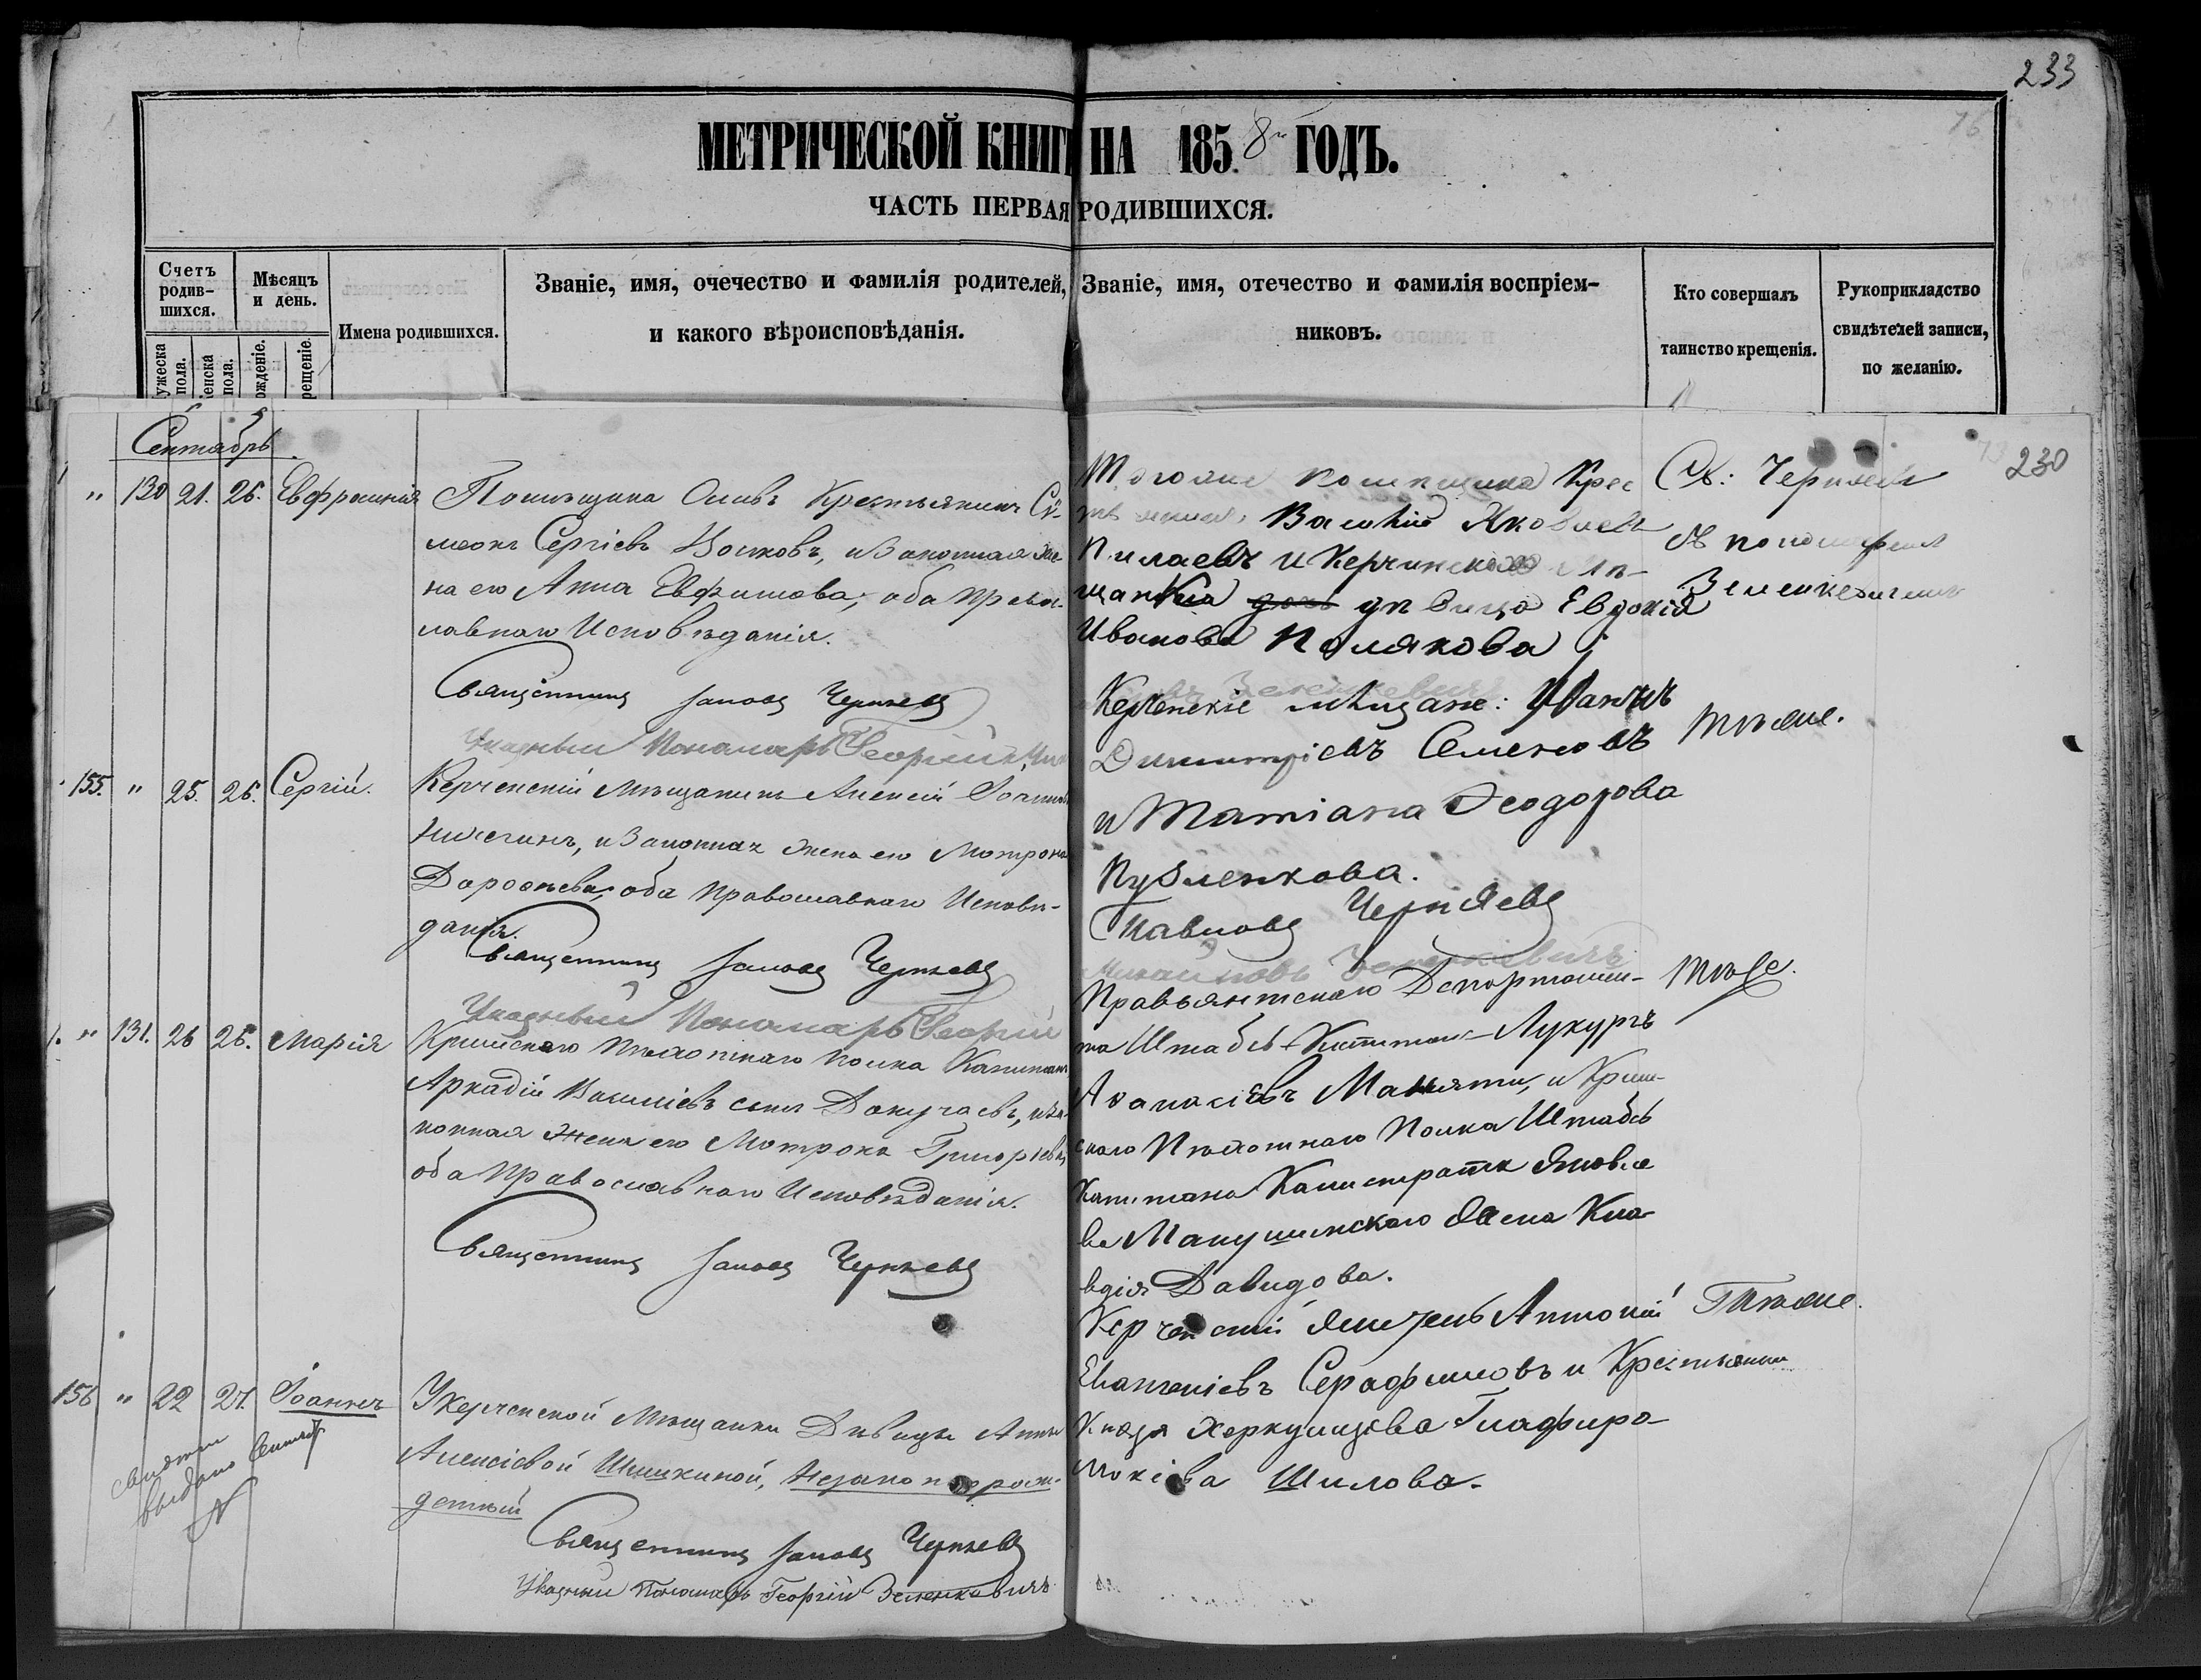 233
76
МЕТРИЧЕСКОЙ КНИГ НА 1858й ГОДЪ.
ЧАСТЬ ПЕРВАЯ РОДИВШИХСЯ.
Счетъ родив-шихся.
Мѣсяцъ и день.
Имена родившихся.
Званіе, имя, очечество и фамилія родителей,
и какого вѣроисповѣданія.
Званіе, имя, отечество и фамилія воспріем-
никовъ.
Кто совершалъ
таинство крещенія.
Рукоприкладство
свидѣтелей записи,
по желанію.
ужеска пола.
енска пола.
ожденіе.
рещеніе.
230
Сентябрь
" 130 21. 26. Евфросинія
Помѣщика Крестьянинъ Си-
меонъ Сергіевъ и законная же-
на его Анна Евфимова, оба Правос-
лавнаго Исповѣданія.
Священникъ Іаковъ Черняевъ
Указный Пономарь Георгій
Тогоже помѣщика Крес
Василій Яковлевъ
Пилаевъ и Керчинская Мѣ-
щанка дочь дѣвица Евдокія
Иванова Полякова
Св: Черняевъ
съ пономаремъ
Зеленкевичемъ
155. " 25. 26. Сергій.
Керченскій Мѣщанинъ Алексій
и Законная жена его Мотрона
Дороѳѣева, оба Православнаго Исповѣ-
данія.
Священникъ Іаковъ Черняевъ
Указный Пономарь Георгій
Керченскіе мѣщане: Иванъ
Димитріевъ Семеновъ
и Татіана Ѳеодорова
Пузленкова.
Павловъ Черняевъ
Михайловъ Зеленкевичъ
Тѣже.
" 131. 26 26. Марія
Крымскаго Пѣхотнаго полка Капитанъ
Аркадій Василіевъ сынъ Докучаевъ, и за-
конная жена его Мотрона Григоріева
оба Православнаго Исповѣданія.
Священникъ Іаковъ Черняевъ
Правьянтскаго Департамен-
та Штабсъ-Капитанъ Ликургъ
Аѳанасіевъ Маняти, и Крым-
скаго Пѣхотнаго Полка Штабсъ
Капитана Калистрата Яковле
ва Макушинскаго жена Кла-
вдія Давидова.
Тѣже.
156 " 22 27. Іоаннъ
У Керченской Мѣщанки Дѣвицы Анны
Алексіевой Шишкиной, незаконорож-
денный
Священникъ Іаковъ Черняевъ
Указный Пономарь Георгій Зеленкевичъ
выдано
Керченскій Антоній
Серафимовъ и Крестьянка
Князя Херкулидзева Глафира
Мокіева Шилова.
Тѣже.